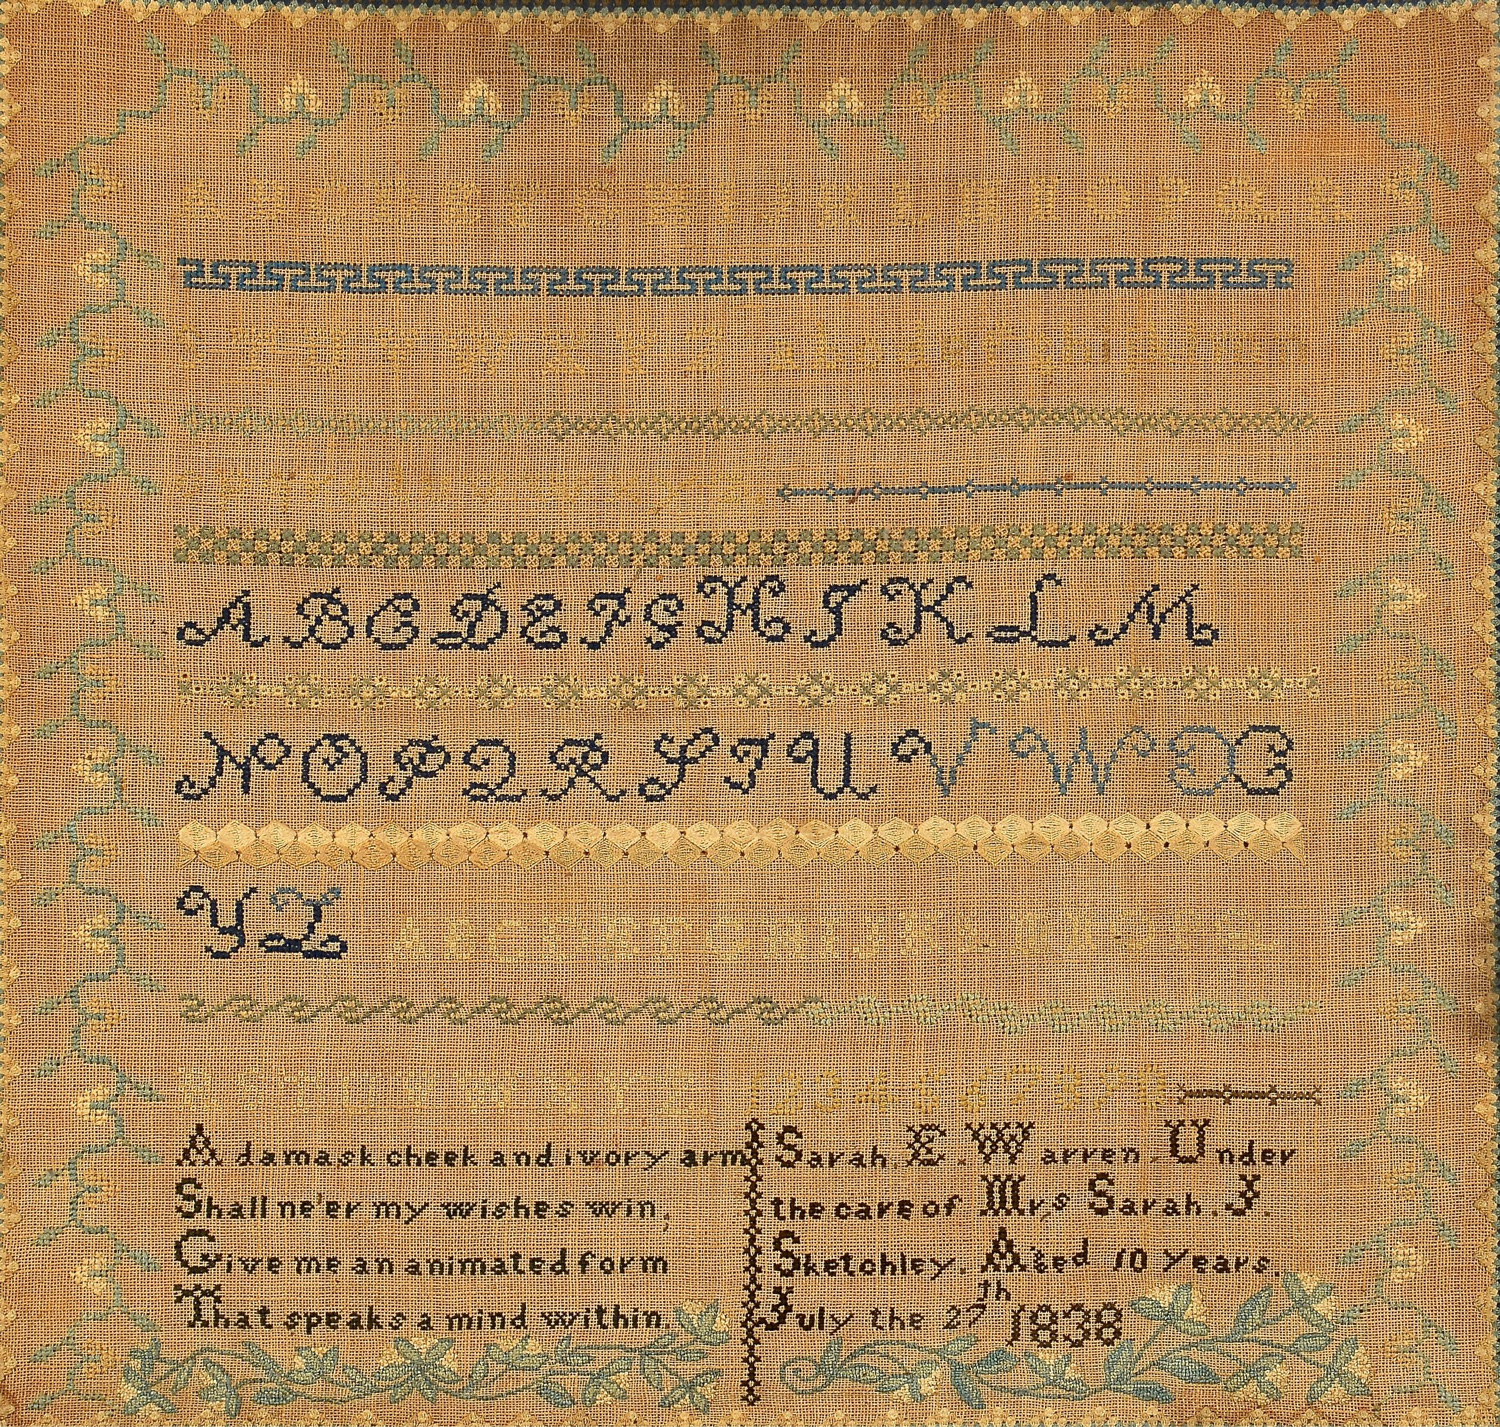 A B C D E F G H I J K L M N O P Q R
S T U V W X Y Z a b c d e f g h i j k l m n
A B C D E F G H I K L M
N O P Q R S T U V W X
Y Z A B C D E F G H I J K L M N O P Q
R S T U V W X Y Z 1 2 3 4 5 6 7 8 9 0
A damask cheek and ivory arm
Shall ne'er my wishes win,
Give me an animated form
That speaks a mind within.
Sarah. E. Warren. Under
the care of Mrs Sarah. J.
Sketchley. Aged 10 years.
July the 27th 1838